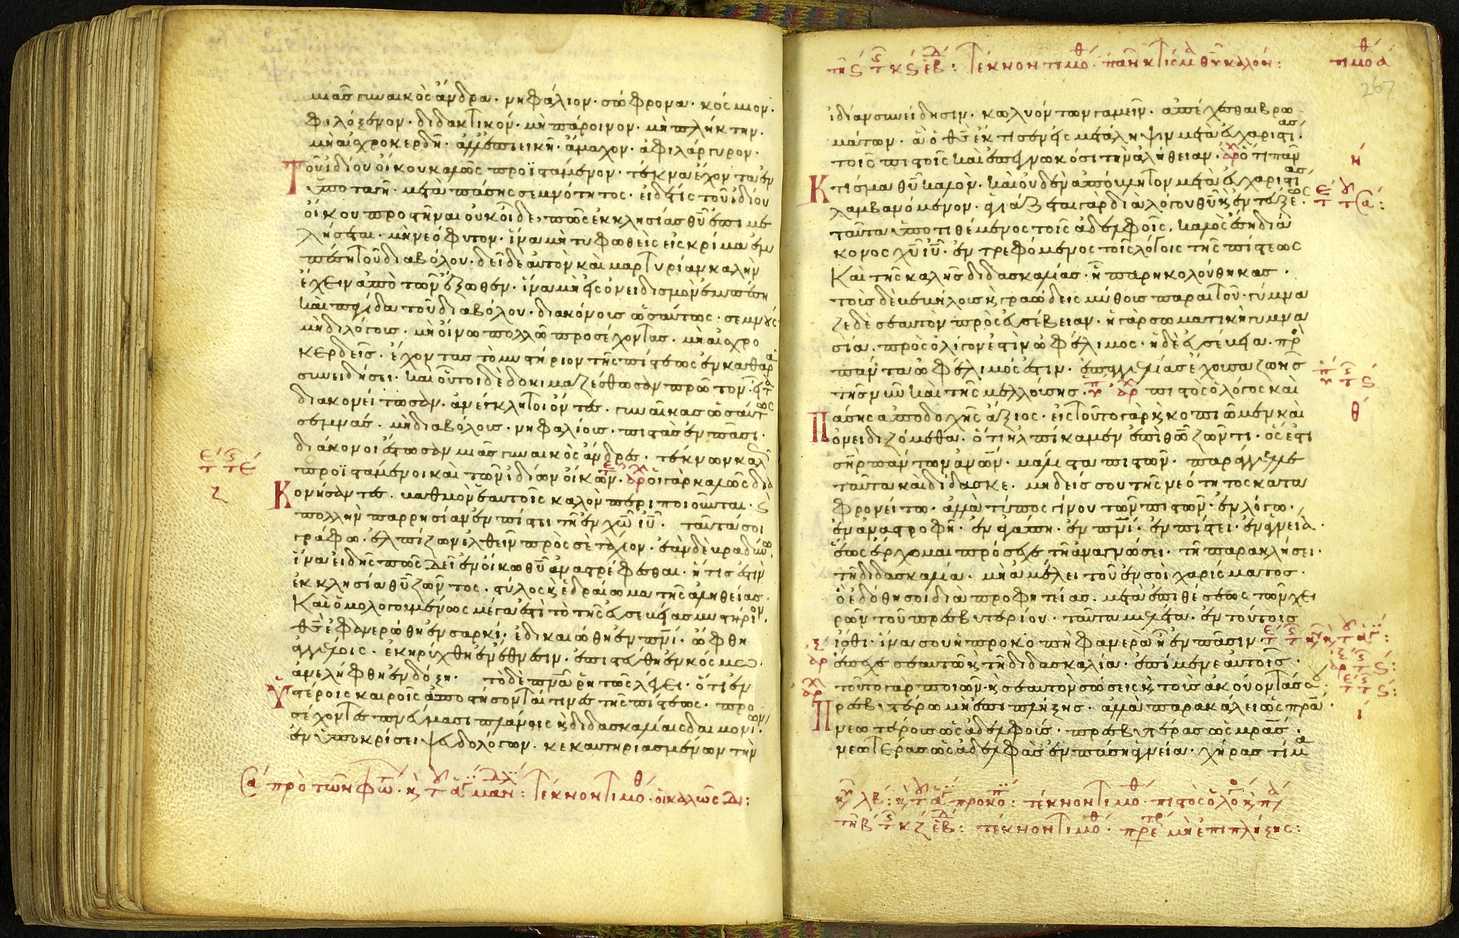 μιᾶς γυναικὸς ἄνδρα· νηφάλιον· σώφρονα· κόσμιον·
φιλόξενον· διδακτικόν· μὴ πάροινον· μὴ πλήκτην·
μὴ αἰσχροκερδῆ· ἀλλ' ἐπιεικῆ· ἄμαχον· ἀφιλάργυρον·
Τοῦ ἰδίου οἴκου καλῶς προϊστάμενον· τέκνα ἔχοντα ἐν
ὑποταγῇ· μετὰ πάσης σεμνότητος· εἰ δέ τις τοῦ ἰδίου
οἴκου προστῆναι οὐκ οἶδε, πῶς ἐκκλησίας θ̅υ̅ ἐπιμε
λήσεται· μὴ νεόφυτον· ἵνα μὴ τυφωθεὶς εἰς κρίμα ἐμ
πέσῃ τοῦ διαβόλου· δεῖ δὲ αὐτὸν καὶ μαρτυρίαν καλὴν
ἔχειν ἀπὸ τῶν ἔξωθεν· ἵνα μὴ εἰς ὀνειδισμὸν ἐμπέσῃ
καὶ παγίδα τοῦ διαβόλου· διακόνους ὡσαύτως· σεμνούς·
μὴ διλόγους· μὴ οἴνω πολλῶ προσέχοντας· μὴ αἰσχρο
κερδεῖς· ἔχοντας τὸ μυστήριον τῆς πίστεως ἐν καθαρᾶ
συνειδήσει· καὶ οὗτοι δὲ δοκιμαζέσθωσαν πρῶτον· εἶτα
διακονείτωσαν· ἀνέγκλητοι ὄντες· γυναῖκας ὡσαύτως
σεμνάς· μὴ διαβόλους· νηφαλίους· πιστὰς ἐν πᾶσι·
διάκονοι ἔστωσαν μιᾶς γυναικὸς ἄνδρες· τέκνων καλῶς
προϊστάμενοι καὶ τῶν ἰδίων οἴκων· οἱ γὰρ καλῶς δια
Κονήσαντες· βαθμὸν ἑαυτοῖς καλὸν περιποιοῦνται· καὶ
πολλὴν παρρησίαν ἐν πίστει τῇ ἐν χ̅ω̅ ι̅υ̅· ταῦτά σοι
γράφω· ἐλπίζων ἐλθεῖν πρὸς σὲ τάχιον· ἐὰν δὲ βραδύνω,
ἵνα εἰδῇς πῶς δεῖ ἐν οἴκω θ̅υ̅ ἀναστρέφεσθαι· ἥτις ἐστὶν
ἐκκλησία θ̅υ̅ ζῶντος· στύλος καὶ ἑδραίωμα τῆς ἀληθείας·
Καὶ ὁμολογουμένως μέγα ἐστὶ τὸ τῆς εὐσεβείας μυστήριον·
θ̅ς̅ ἐφανερώθη ἐν σαρκί· ἐδικαιώθη ἐν π̅ν̅ι̅· ὤφθη
ἀγγέλοις· ἐκηρύχθη ἐν ἔθνεσιν· ἐπιστεύθη ἐν κόσμω·
ἀνελήφθη ἐν δόξῃ· τὸ δὲ π̅ν̅α̅ ῥητῶς λέγει· ὅτι ἐν
Ὑστέροις καιροῖς ἀποστήσονταί τινες τῆς πίστεως· προ
σέχοντες π̅ν̅ε̅υμασι πλάνοις καὶ διδασκαλίαις δαιμονίων·
ἐν ὑποκρίσει ψευδολόγων· κεκαυτηριασμένων τὴν
πρὸ τῶν φώ· κ τέκνον τιμόθ· οἱ καλῶς δι:
τέκνον τιμόθ· πᾶν κτίσμα θ̅υ̅ καλόν:
τιμοθ α
267
ἰδίαν συνείδησιν· κωλυόντων γαμεῖν· ἀπέχεσθαι βρω
μάτων· ἃ ὁ θ̅ς̅ ἔκτισεν εἰς μετάληψιν μετὰ εὐχαριστίας
τοῖς πιστοῖς καὶ ἐπεγνωκόσι τὴν ἀλήθειαν· ὅτι πᾶν
Κτίσμα θ̅υ̅ καλόν· καὶ οὐδὲν ἀπόβλητον μετὰ εὐχαριστίας
λαμβανόμενον· ἁγιάζεται γὰρ διὰ λόγου θ̅υ̅ καὶ ἐντεύξεως·
ταῦτα ὑποτιθέμενος τοῖς ἀδελφοῖς, καλὸς ἔσῃ διά
κονος χ̅υ̅ ι̅υ̅· ἐντρεφόμενος τοῖς λόγοις τῆς πίστεως
Καὶ τῆς καλῆς διδασκαλίας· ἧ παρηκολούθηκας·
τοὺς δὲ βεβήλους καὶ γραώδεις μύθους παραιτοῦ· γύμνα
ζε δὲ σεαυτὸν πρὸς εὐσέβειαν· ἡ γὰρ σωματικὴ γυμνα
σία, πρὸς ὀλίγον ἐστὶν ὠφέλιμος· ἡ δὲ εὐσέβεια· πρὸς
πάντα ὠφέλιμός ἐστιν· ἐπαγγελίας ἔχουσα ζωῆς
τῆς νῦν καὶ τῆς μελλούσης· πιστὸς ὁ λόγος καὶ
Πάσης ἀποδοχῆς ἄξιος· εἰς τοῦτο γὰρ καὶ κοπιῶμεν καὶ
ὀνειδιζόμεθα· ὅτι ἠλπίκαμεν ἐπὶ θ̅ω̅ ζῶντι· ὅς ἐστι
σ̅η̅ρ̅ πάντων ἀ̅ν̅ω̅ν̅· μάλιστα πιστῶν· παράγγελλε
ταῦτα καὶ δίδασκε· μηδείς σου τῆς νεότητος κατα
φρονείτω· ἀλλὰ τύπος γίνου τῶν πιστῶν· ἐν λόγω·
ἐν ἀναστροφῇ· ἐν ἀγάπῃ· ἐν π̅ν̅ι̅· ἐν πίστει· ἐν ἁγνείᾳ·
ἕως ἔρχομαι πρόσεχε τῇ ἀναγνώσει· τῇ παρακλήσει·
τῇ διδασκαλίᾳ· μὴ ἀμέλει τοῦ ἐν σοὶ χαρίσματος·
ὃ ἐδόθη σοι διὰ προφητείας· μετὰ ἐπιθέσεως τῶν χει
ρῶν τοῦ πρεσβυτερίου· ταῦτα μελέτα· ἐν τούτοις
ἴσθι· ἵνα σου ἡ προκοπὴ φανερὰ ᾖ ἐν πᾶσιν·
ἔπεχε σεαυτῶ καὶ τῇ διδασκαλία· ἐπίμενε αὐτοῖς·
τοῦτο γὰρ ποιῶν· καὶ σεαυτὸν σώσεις καὶ τοὺς ἀκούοντάς σου·
Πρεσβυτέρω μὴ ἐπιπλήξῃς· ἀλλὰ παρακάλει ὡς π̅ρ̅α̅·
νεωτέρους ὡς ἀδελφούς· πρεσβυτέρας ὡς μ̅ρ̅α̅ς̅·
νεωτέρας ὡς ἀδελφὰς ἐν πάσῃ ἁγνείᾳ· χήρας τίμα
τέκνον τιμόθ· πιστὸς ὁ λόγος
τέκνον τιμόθ· πρε μὴ ἐπιπλήξῃς: